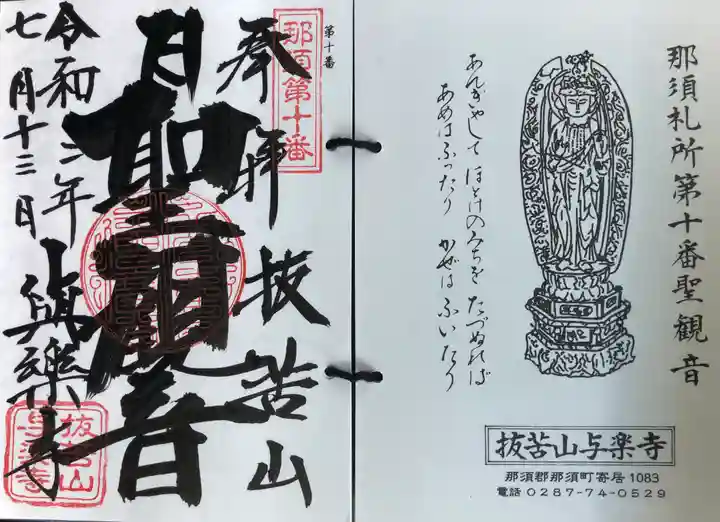 那須札所第十番聖観音
あんぎゃして ほとけのみちを たづぬれば
あめはふったり かぜは ふいたり
抜苦山与楽寺
那須郡那須町寄居1083
電話 0287-74-0529
第十番
那須第十番
奉拝 抜苦山
聖観音
令和三年
七月十三日
與樂寺
抜苦山
与楽寺